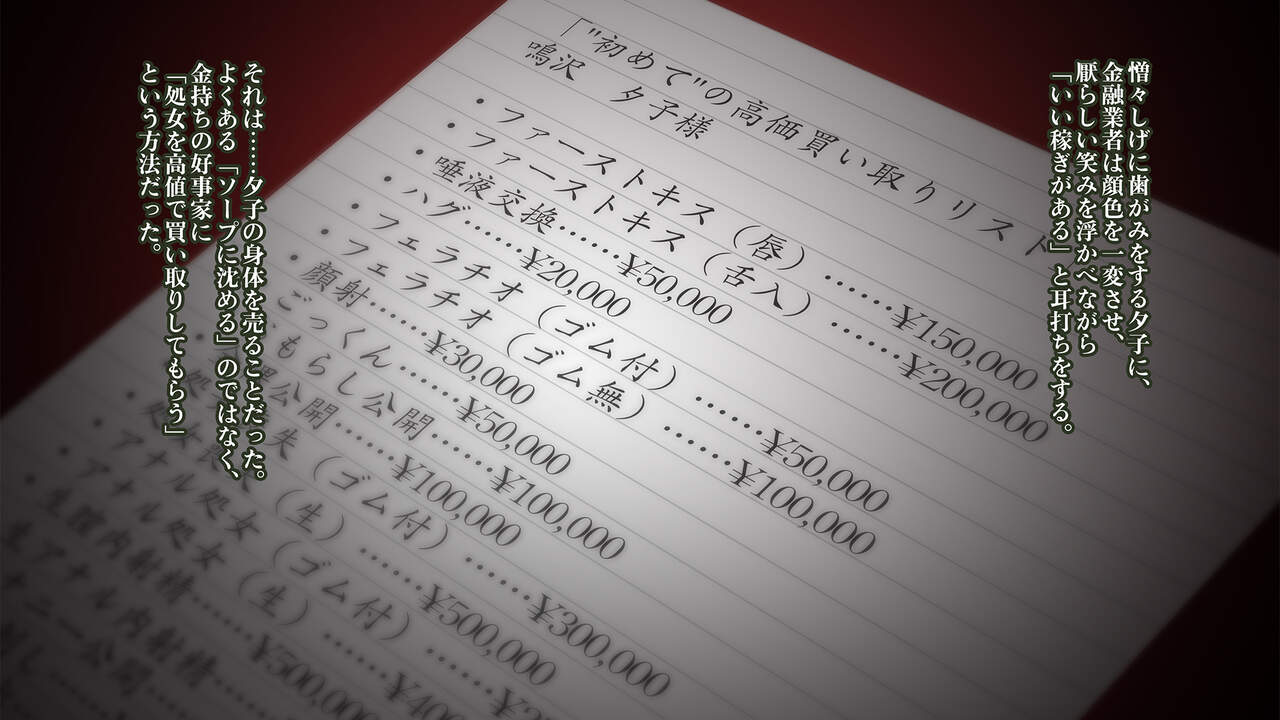 憎々しげに歯がみをする夕子に、
金融業者は顔色を一変させ、
厭らしい笑みを浮かべながら
「いい稼ぎがある」と耳打ちをする。
「"初めて"の高価買い取りリスト
鳴沢　夕子様
・ファーストキス（唇）……¥150,000
・ファーストキス（舌入）……¥200,000
・唾液交換……¥50,000
・ハグ……¥20,000
・フェラチオ（ゴム付）……¥50,000
・フェラチオ（ゴム無）……¥100,000
・顔射……¥30,000
ごっくん……¥50,000
もらし公開……¥100,000
公開……¥100,000
失（ゴム付）……¥300,000
（生）……¥500,000
・アナル処女（ゴム付）……
・アナル処女（生）……
・生膣内射精……¥500,000
アナル内射精……
ニー公開……
それは……夕子の身体を売ることだった。
よくある「ソープに沈める」のではなく、
金持ちの好事家に
「処女を高値で買い取りしてもらう」
という方法だった。